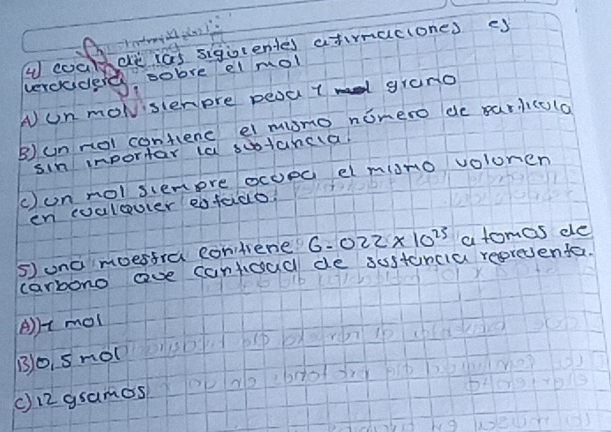 4) cual de las sigientes afirmaciones es
verdadera, sobre el mol
A) un mol siempre pesa 1 gramo
B) un mol contiene el mismo número de particula
sin importar la sustancia.
c) un mol siempre ocupa el mismo volumen
en cualquier estado.
5) una muestra contiene 6.022 x 10²³ atomos de
carbono que cantidad de sustancia representa.
A) 1 mol
B) 0,5 mol
c) 12 gramos